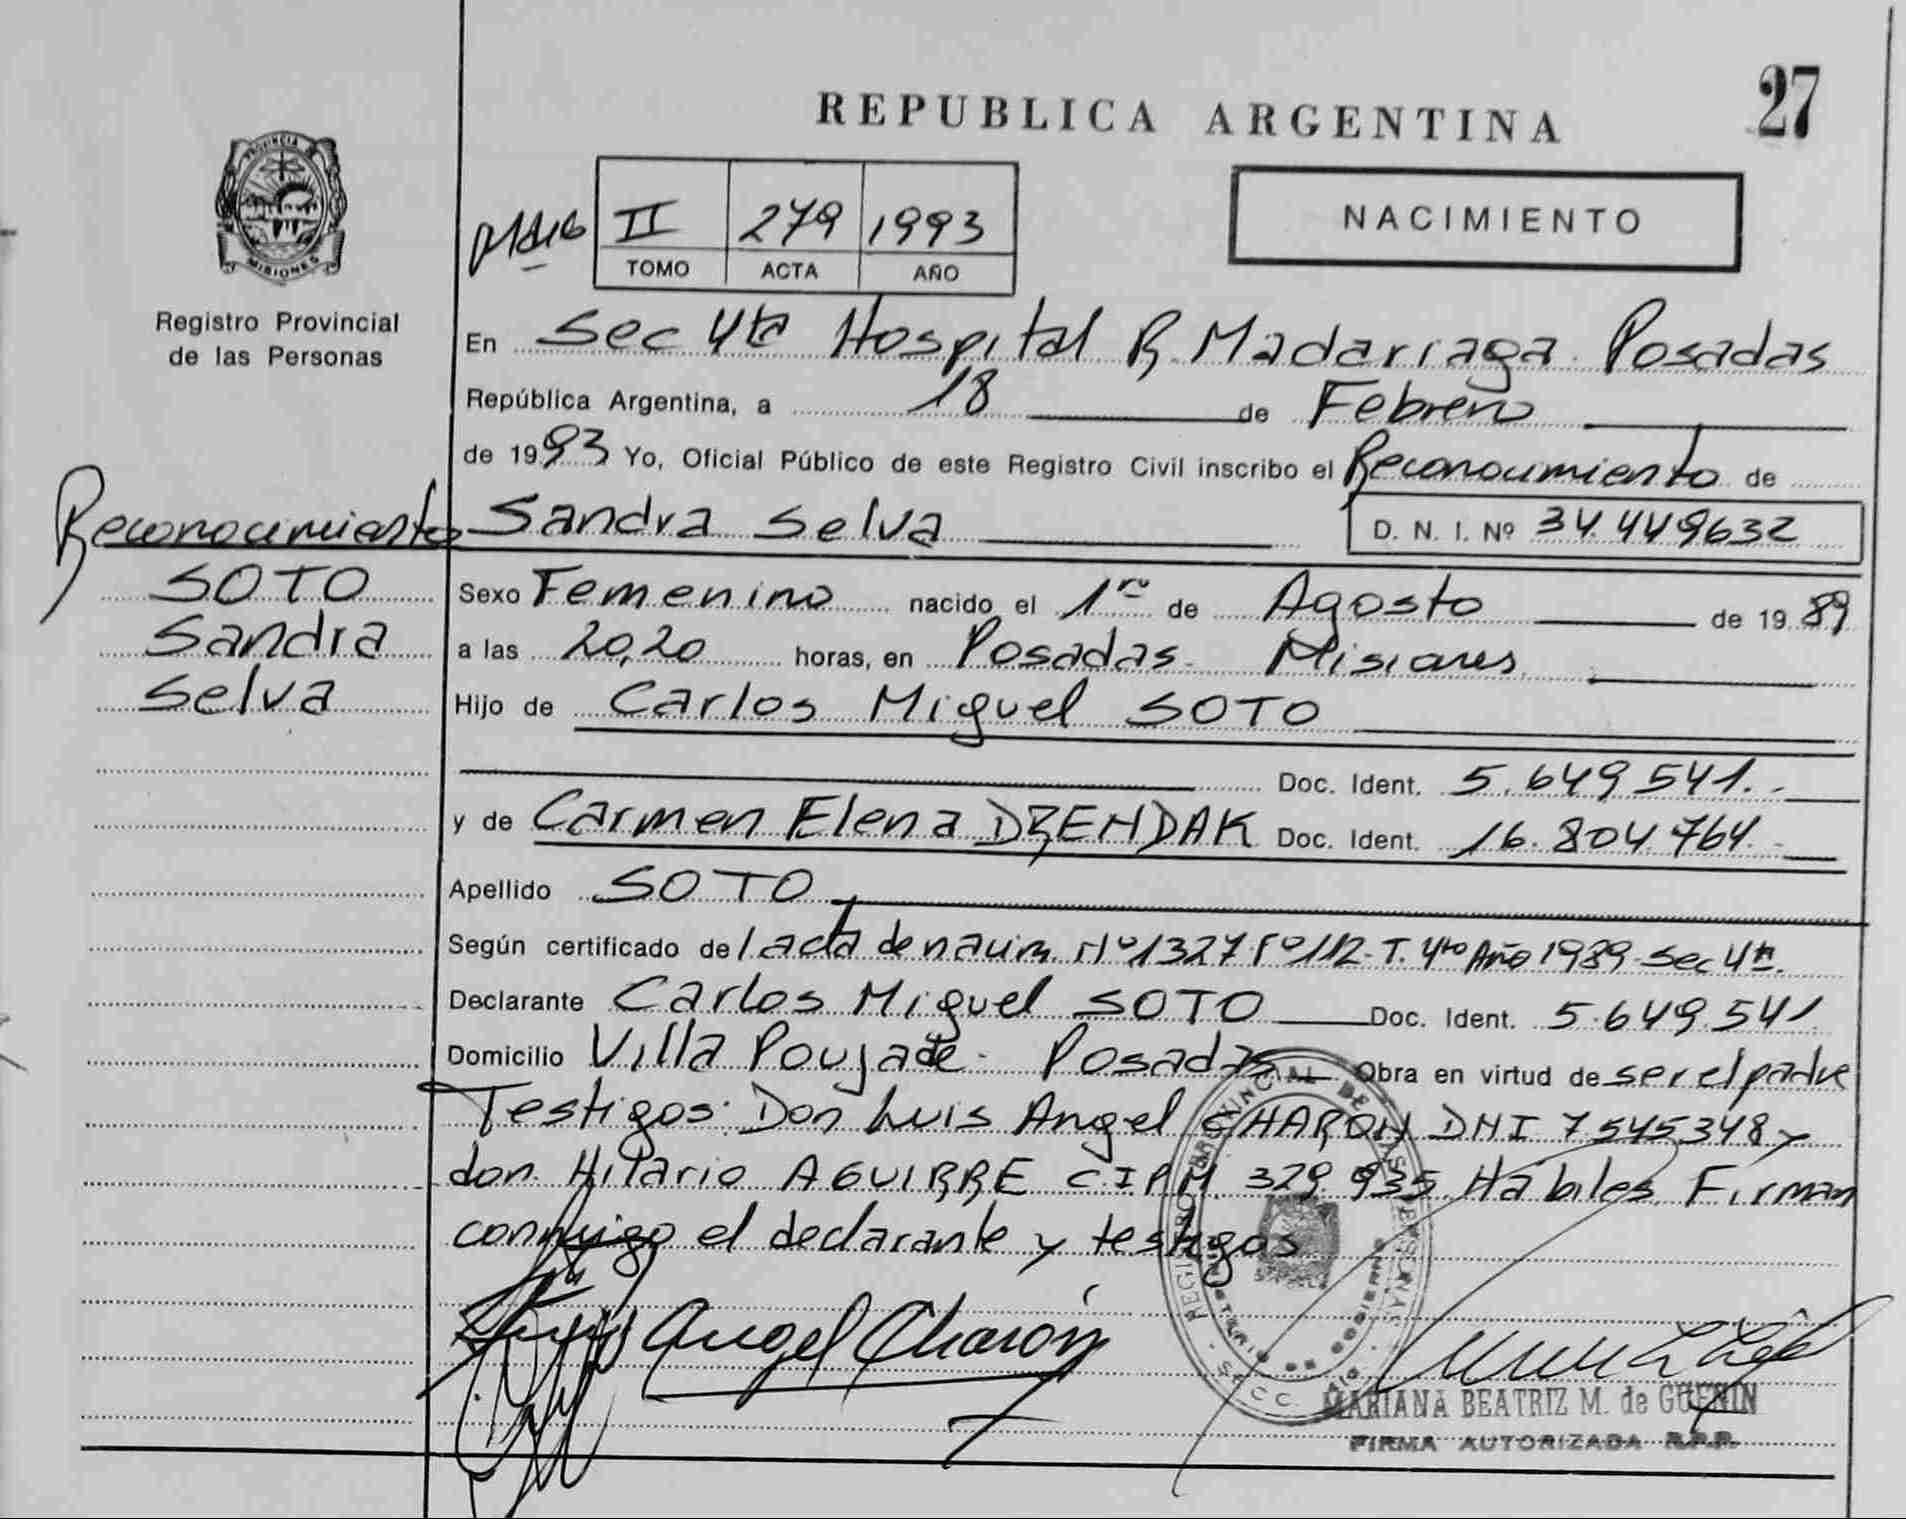 27
REPUBLICA ARGENTINA
NACIMIENTO
II 279 1993
TOMO ACTA AÑO
PROVINCIA DE
MISIONES
Registro Provincial
de las Personas
En Sec 4ta Hospital R. Madariaga Posadas
República Argentina, a 18 de Febrero
de 1993 Yo, Oficial Público de este Registro Civil inscribo el Reconocimiento de
Reconocimiento
SOTO
Sandra
Selva
Sandra Selva D. N. I. Nº 34.449632
Sexo Femenino nacido el 1ro de Agosto de 1989
a las 20,20 horas, en Posadas Misiones
Hijo de Carlos Miguel SOTO
Doc. Ident. 5.649.541.
y de Carmen Elena DZENDAK Doc. Ident. 16.804.764
Apellido SOTO
Según certificado de l acta de nacim. Nº 1327 Fº 112 T. 4to Año 1989 Sec 4ta.
Declarante Carlos Miguel SOTO Doc. Ident. 5.649.541
Domicilio Villa Poujade - Posadas Obra en virtud de ser el padre
Testigos: Don Luis Angel CHARON DNI 7545348 y
don Hilario AGUIRRE CIPM 329 935 Hábiles. Firman
conmigo el declarante y testigos
REGISTRO PROVINCIAL DE LAS PERSONAS
MINISTERIO DE GOBIERNO
Angel Charón
MARIANA BEATRIZ M. de GUENIN
FIRMA AUTORIZADA R.P.P.